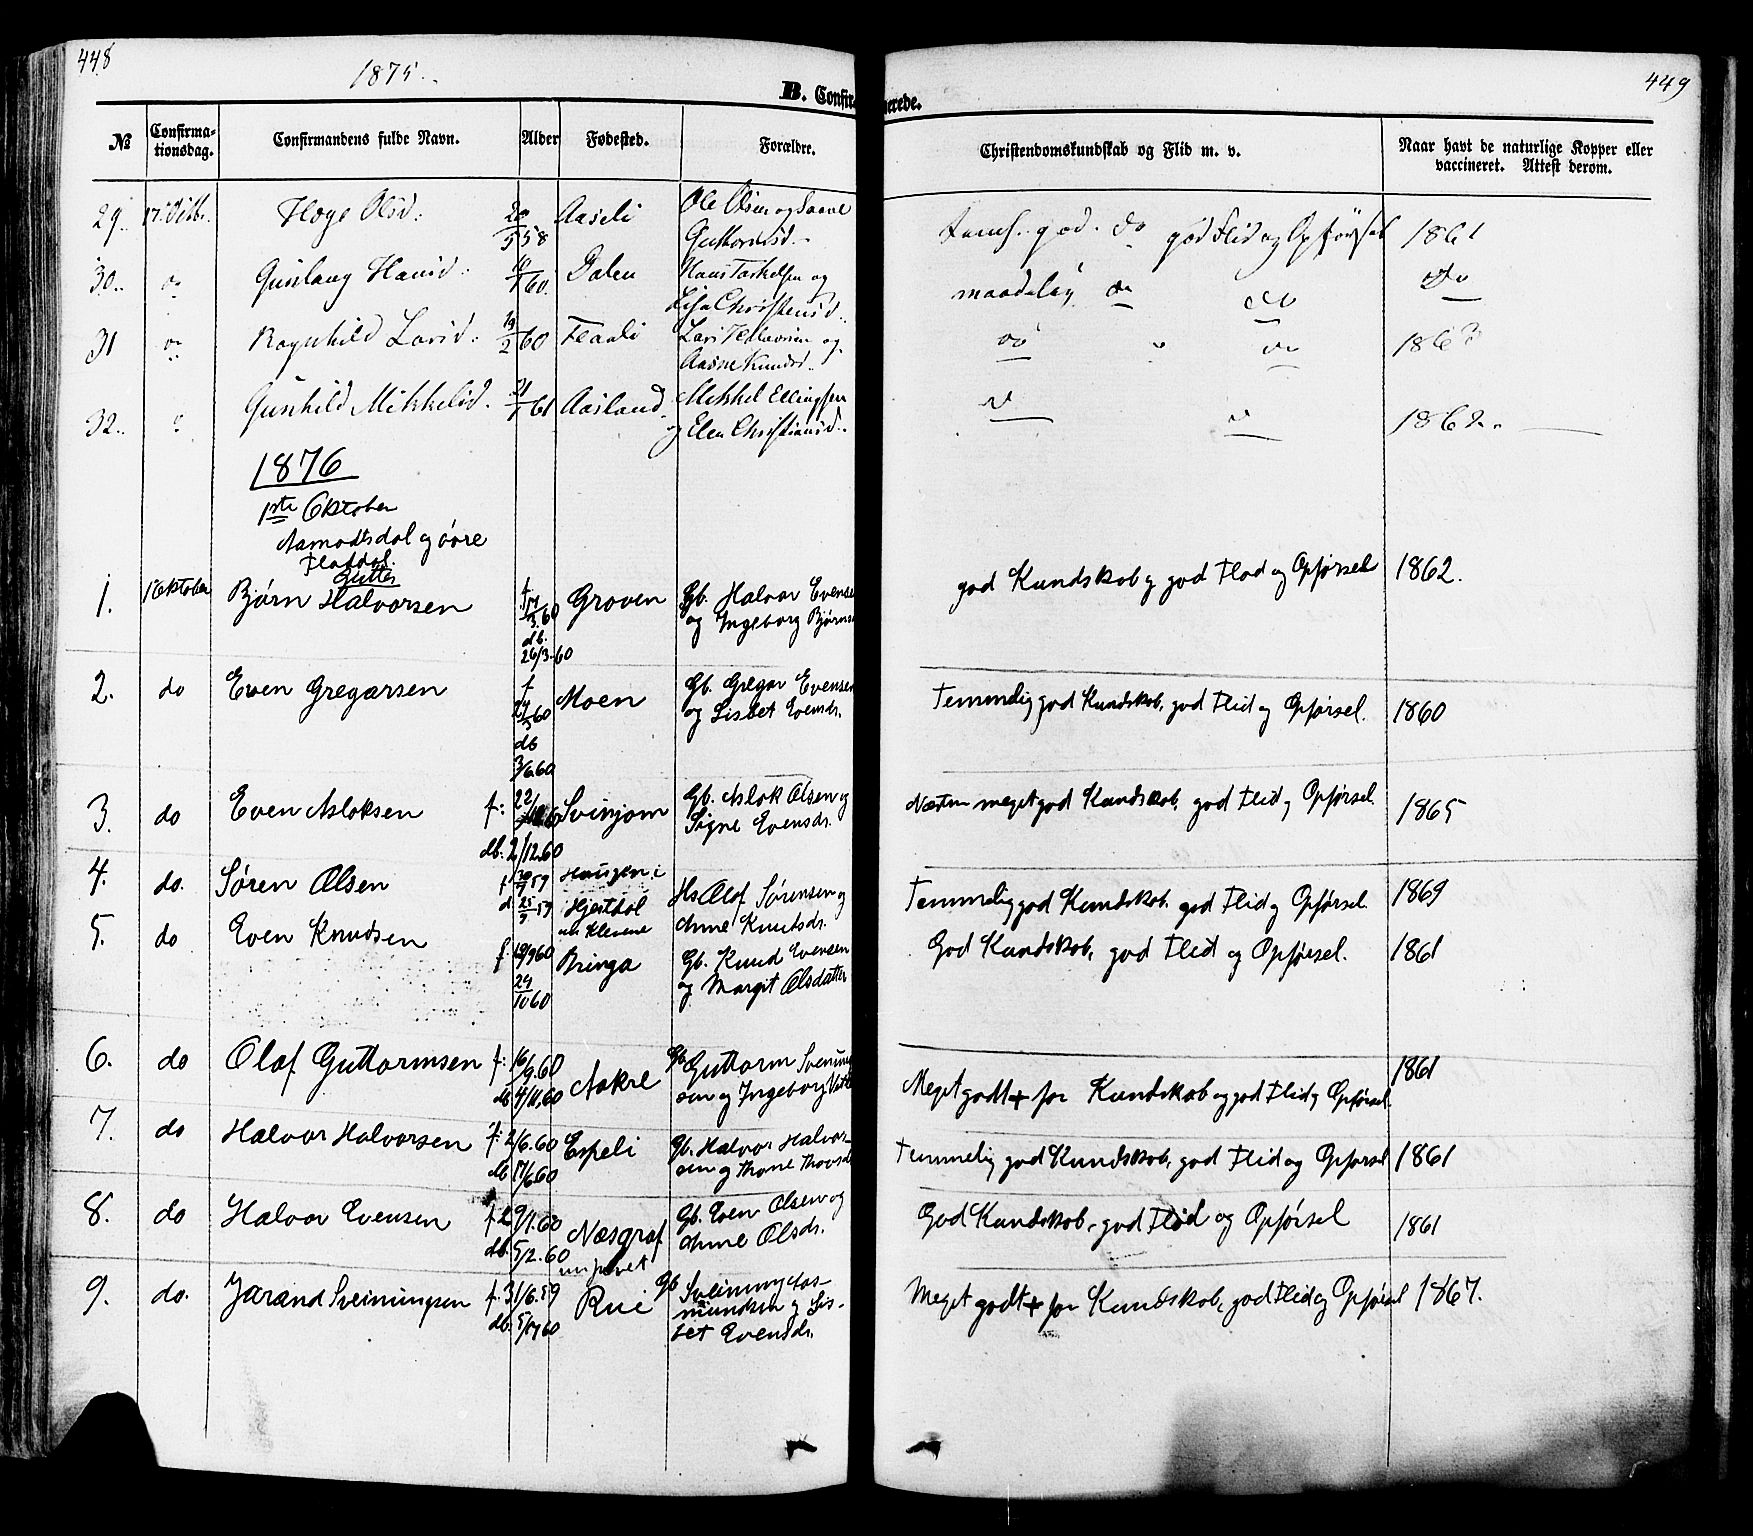 448
1875.
B. Confir
№
Confirma-
tionsdag.
Confirmandens fulde Navn.
Alder
Fødested.
Forældre.
29. 17. Oktbr. Hoge Olsd. 20/5 58 Aaseli Ole Olsen og
Guttormsd.
30. do Gunlaug Hansd. /60. Dalen Hans Torkelsen og
Lisa Christensd.
31 do Ragnhild Larsd. 19/2 60 Flaali Lars og
Aasne Knudsd.
32. Gunhild Mikkelsd. 61 Aasland Mikkel Ellingsen
og Elen Christiansd.
1876
1ste Oktober
Aamodtsdal og øvre
Flatdal.
Gutter
1. 1 Oktober Bjørn Halvorsen f 60 Groven Gb. Halvor Evense
og Ingeborg Bjørns
db.
26/3-60
2. do Even Gregarsen f 60 Moen Gb. Gregar Evensen
og Lisbet Evensdr.
db
3/6.60
3. do Even Asloksen f: 22/ Svinjom Gb. Aslok Olsen og
Signe Evensdr.
db: 2/12.60
4. do. Søren Olsen f 59 Haugen i
d 25 59 Hjertdal Hs Olaf Sørensen og
Klevene Anne Knutsdr.
5. do Even Knudsen f. 19/960 Bringa Gb. Knud Evensen
og Margit Olsdatter
29/10 60
6. do Olaf Guttormsen f: 16/9.60 Aakre Gb. Guttorm Sveinung
db 4/11.60 sen og Ingeborg
7. do Halvor Halvorsen f: 2/6.60 Espeli Gb. Halvor Halvor-
db 17/6.60 sen og Thone Thovsd
8. do Halvor Evensen f 29/1.60 Næsgraf Gb. Even Olsen og
db. 5/2.60 Anne Olsdr.
9. do. Jarand Sveinungsen f. 31/6.59 Rui Gb Sveinung Aas-
mundsen og Lis-
db: 5/ 60
bet Evensdr.
449
nerede.
Christendomskundskab og Flid m. v.
Naar havt de naturlige Kopper eller
vaccineret. Attest derom.
Temf. god. do god Flid og Opførsel 1861
maadelig do do Do
do do 1863
1862.
god Kundskab og god Flid og Opførsel 1862.
Temmelig god Kundskab, god Flid og Opførsel. 1860
Næsten meget god Kundskab, god Flid og Opførsel. 1865
Temmelig god Kundskab, god Flid og Opførsel. 1869
God Kundskab, god Flid og Opførsel. 1861
Meget godt + for Kundskab og god Flid og Opførsel. 1861
Temmelig god Kundskab, god Flid og Opførsel 1861
God Kundskab, god Flid og Opførsel 1861
Meget godt + for Kundskab, god Flid og Opførsel 1867.